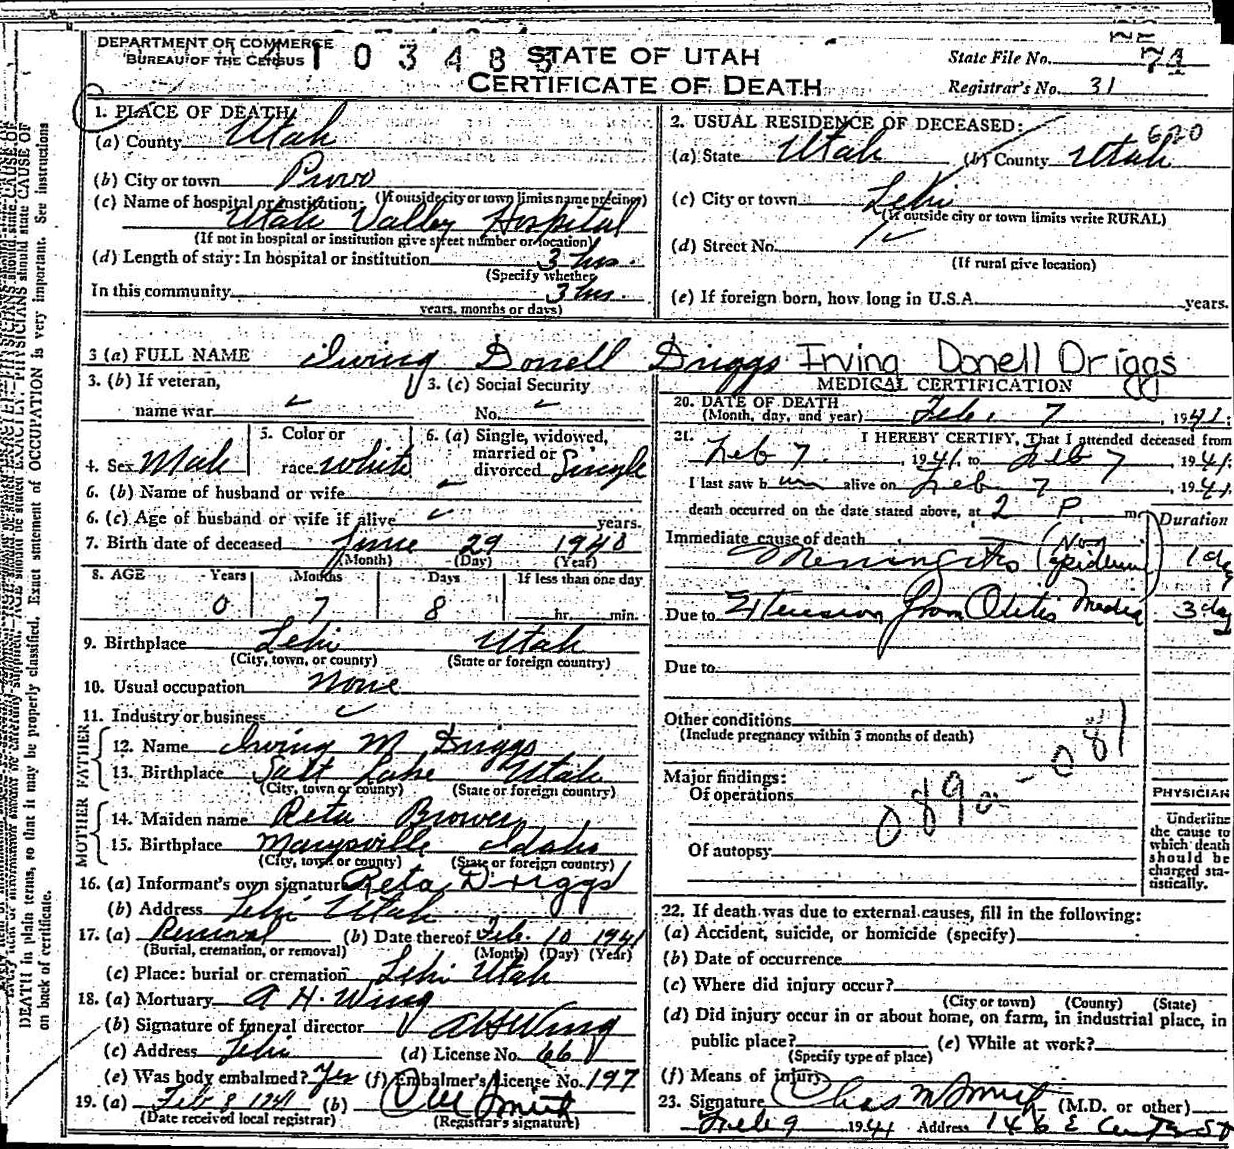 DEPARTMENT OF COMMERCE
BUREAU OF THE CENSUS
10348
STATE OF UTAH
CERTIFICATE OF DEATH
State File No. 74
Registrar's No. 31
1. PLACE OF DEATH
(a) County Utah
(b) City or town Provo
(If outside city or town limits name precinct)
(c) Name of hospital or institution:
Utah Valley Hospital
(If not in hospital or institution give street number or location)
(d) Length of stay: In hospital or institution 3 hrs.
(Specify whether
In this community 3 hrs.
years, months or days)
2. USUAL RESIDENCE OF DECEASED:
620
(a) State Utah (b) County Utah
(c) City or town Lehi
(If outside city or town limits write RURAL)
(d) Street No.
(If rural give location)
(e) If foreign born, how long in U.S.A. years.
3 (a) FULL NAME Irving Donell Driggs Irving Donell Driggs
3. (b) If veteran,
name war
3. (c) Social Security
No.
4. Sex Male
5. Color or
race white
6. (a) Single, widowed,
married or
divorced Single
6. (b) Name of husband or wife
6. (c) Age of husband or wife if alive years.
7. Birth date of deceased June 29 1940
(Month) (Day) (Year)
8. AGE Years Months Days If less than one day
0 7 8 hr. min.
9. Birthplace Lehi Utah
(City, town, or county) (State or foreign country)
10. Usual occupation None
11. Industry or business
FATHER
12. Name Irving M Driggs
13. Birthplace Salt Lake Utah
(City, town or county) (State or foreign country)
MOTHER
14. Maiden name Reta
15. Birthplace Marysville Idaho
(City, town or county) (State or foreign country)
16. (a) Informant's own signature Reta Driggs
(b) Address Lehi Utah
17. (a) Removal (b) Date thereof Feb. 10 1941
(Burial, cremation, or removal) (Month) (Day) (Year)
(c) Place: burial or cremation Lehi Utah
18. (a) Mortuary A H. Wing
(b) Signature of funeral director AH Wing
(c) Address Lehi (d) License No. 66
(e) Was body embalmed? Yes (f) Embalmer's License No. 197
19. (a) Feb 8 1941 (b)
(Date received local registrar) (Registrar's signature)
MEDICAL CERTIFICATION
20. DATE OF DEATH
(Month, day, and year) Feb. 7, 1941.
21. I HEREBY CERTIFY, That I attended deceased from
Feb 7, 1941, to Feb 7, 1941.
I last saw him alive on Feb 7, 1941.
death occurred on the date stated above, at 2 P. m.
Duration
Immediate cause of death
Meningitis (Non epidemic) 1 day
Due to Extension from Otitis Media 3 day
Due to
Other conditions
(Include pregnancy within 3 months of death)
081
Major findings:
Of operations
0890
Of autopsy
PHYSICIAN
Underline
the cause to
which death
should be
charged sta-
tistically.
22. If death was due to external causes, fill in the following:
(a) Accident, suicide, or homicide (specify)
(b) Date of occurrence
(c) Where did injury occur?
(City or town) (County) (State)
(d) Did injury occur in or about home, on farm, in industrial place, in
public place? (e) While at work?
(Specify type of place)
(f) Means of injury
23. Signature Chas M Smith (M.D. or other)
Feb 9 1941 Address 146 E Center St
DEATH in plain terms, so that it may be properly classified. Exact statement of OCCUPATION is very important. See instructions
on back of certificate.